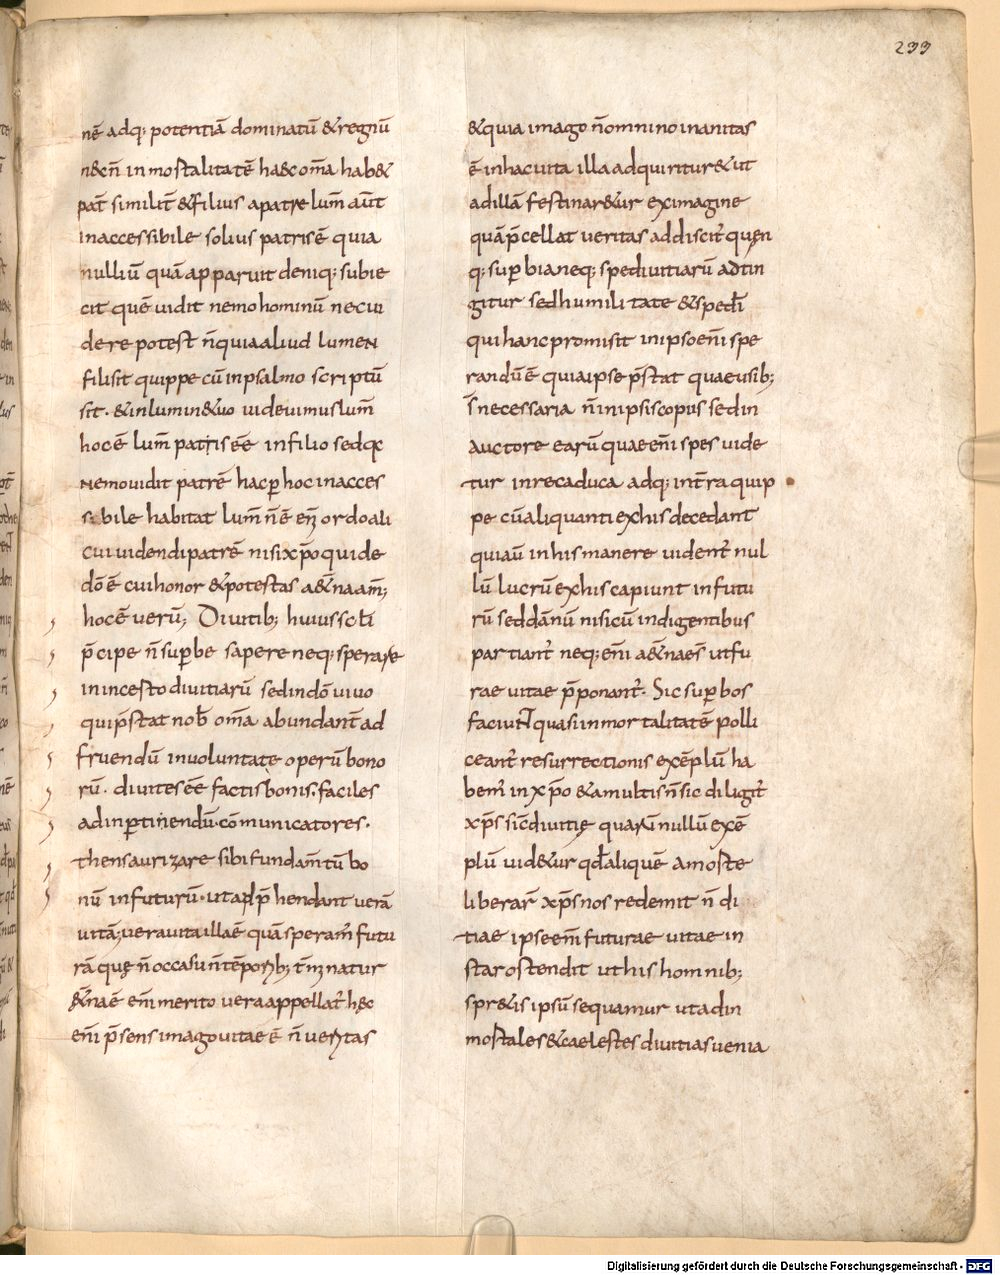 233
nē adq; potentiā dominatū &regnū
n&cn̄ inmortalitatē haec om̄a hab&
pat̄ similit̄ &filius apatre lum̄ aūt
inaccessibile solius patris ē quia
nulliū quā apparuit deniq; subie
cit quē uidit nemo hominū necui
dere potest n̄quia aliud lumen
filisit quippe cū inpsalmo scriptū
sit · &inlumin&uo uidevimus lum̄
hoc ē lum̄ patris eē infilio sedqc
Nemouidit patrē hac p̱ hoc inacces
sibile habitat lum̄ n̄ē eni ordo ali
cui uidendipatrē nisi xp̄o qui de
dō ē cui honor &potestas a&̄na am̄;
hoc ē uerū; Diuitib; huius scl̄i
p̄cipe n̄ sup̱be sapere neq; sperare
inincesto diuitiarū sed indō uiuo
qui p̄stat nob̄ om̄a abundant̄ ad
fruendū inuoluntate operū bono
rū · diuites eē factis bonis. faciles
adinp̱tinendū · communicatores ·
thensaurizare sibi fundam̄tū bo
nū infuturū · ut adp̄hendant uerā
uitā; uera uita illa ē quā speram̄ futu
rā quę n̄ occasun̄ tēporib; t̄mnatur
&̄naē eni merito uera appellat̄ hęc
eni p̄sens imago uitae ē n̄ ueritas
&quia imago n̄omnino inanitas
ē inhac uita illa adquiritur & ut
adillā festinar&ur eximagine
quā p̄cellat ueritas addiscit̄ quęn
q; sup̱bia neq; spe diuitiarū adtin
gitur sed humilitate &spe dī
qui hanc promisit inipso eni spe
randū ē quia ipse p̄stat quae usib;
s̄ necessaria n̄ inipsis copus sed in
auctore earū quae eni spes uide
tur inrecaduca adq; int̄ra quip
pe cū aliquanti exhis decedant
quiaū inhis manere uident̄ nul
lū lucrū exhis capiunt infutu
rū sed dānū nisi cū indigentibus
partiant̄ neq; eni a&̄naes ut fu
rae uitae p̄ponant̄ · Sic sup̱bos
faciunt quasi inmortalitatē polli
ceant̄ resurrectionis exēplū ha
bem̄ in xp̄o & amultis n̄ sic diligit̄
xp̄s sic̄ diuitię quarū nullū exē
plū uid&ur qd̄ aliquē amorte
liberar̄ xp̄s nos redemit n̄ di
tiae ipse eni futurae uitae in
star ostendit ut his hominib;
spr&is ipsū sequamur ut ad in
mortales &caelestes diuitias uenia
Digitalisierung gefördert durch die Deutsche Forschungsgemeinschaft - DFG